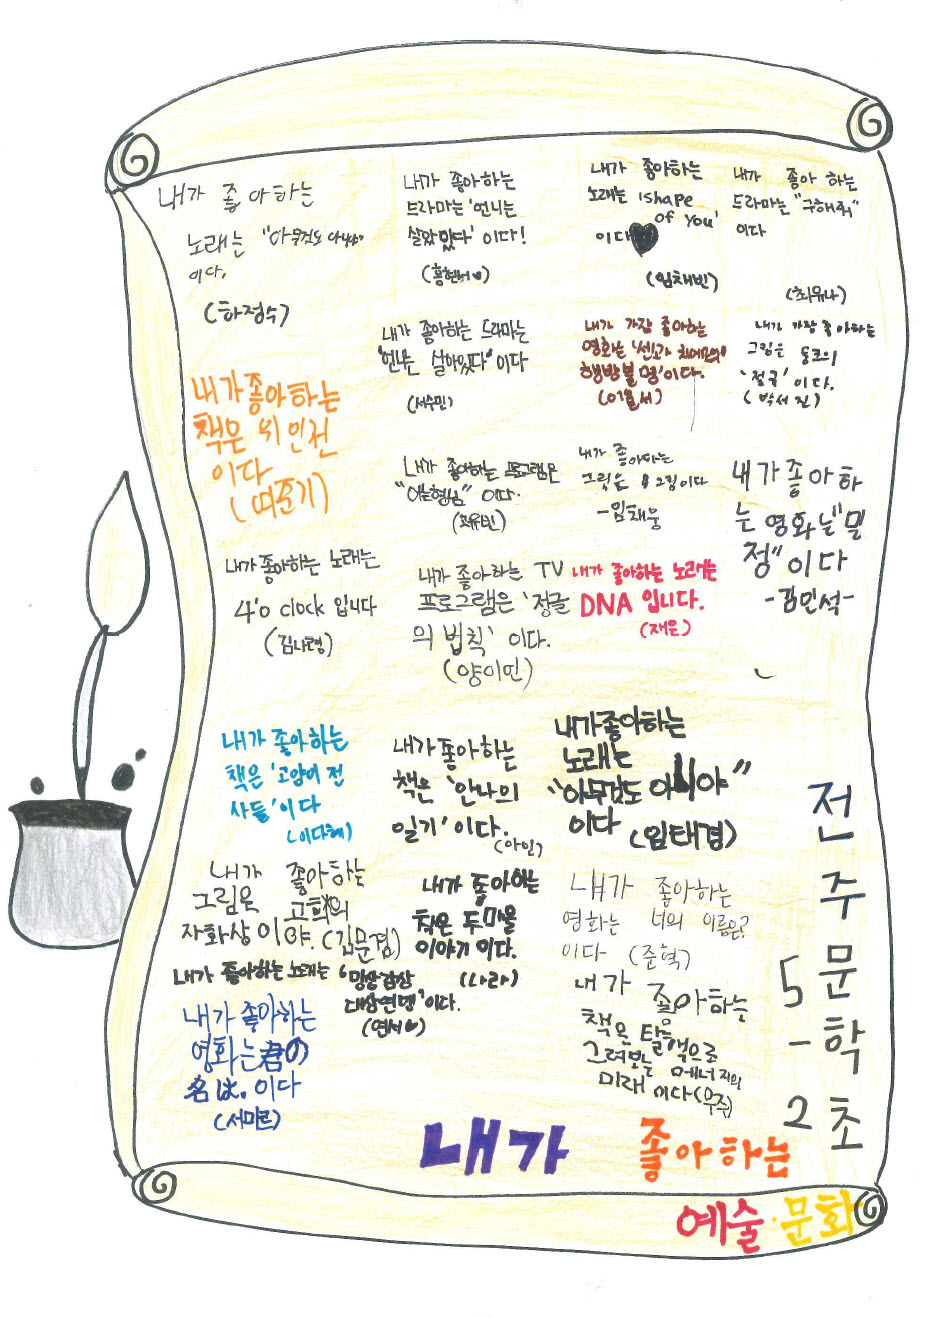 내가 좋아하는
노래는 "아무것도 아니야"
이다.
(하정수)
내가 좋아하는
드라마는 '언니는
살아있다' 이다!
(홍현서♥)
내가 좋아하는
노래는 'shape
of you'
이다♥
(임채빈)
내가 좋아 하는
드라마는 "구해줘"
이다
(최유나)
내가 좋아하는 드라마는
"언니는 살아있다" 이다
(서수민)
내가 가장 좋아하는
영화는
행방불명'이다.
내가 가장 좋아하는
그림은 뭉크의
'절규' 이다.
(박서진)
내가좋아하는
책은 위인전
이다
(떠준기)
내가 좋아하는 프로그램은
"아는형님" 이다.
(고유빈)
내가 좋아하는
그림은 용 그림이다
-임채웅
내가좋아하
는 영화는 "밀
정" 이다
-김민석-
내가 좋아하는 노래는
4'o clock 입니다
(김나경)
내가 좋아하는 TV
프로그램은 '정글
의 법칙' 이다.
(양이민)
내가 좋아하는 노래는
DNA 입니다.
(재윤)
내가 좋아하는
책은 '고양이 전
사들'이다
(이다혜)
내가좋아하는
책은 '안나의
일기'이다.
(아인)
내가좋아하는
노래는
"아무것도 아니야"
이다 (임태경)
내가 좋아하는
그림은 고흐의
자화상이야. (김문겸)
내가 좋아하는
책은 두 마을
이야기 이다.
(나라)
내가 좋아하는
영화는 너의 이름은?
이다 (준혁)
내가 좋아하는 노래는 '망상감상
대상연맹'이다.
(연서♥)
내가 좋아하는
영화는 君の
名は。이다
(서미르)
내가 좋아하는
책은 탐구적으로
그려보는 에너지의
미래 이다 (우주)
전주문학초
5-2
내가 좋아하는
예술·문화